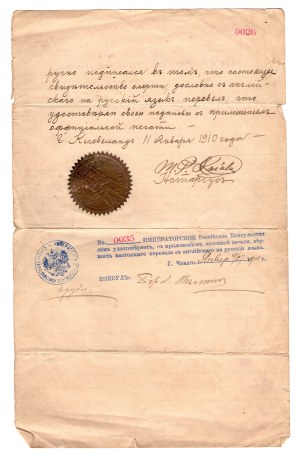 0026
ручно подписался въ томъ, что настоящее
свидѣтельство смерти, дословно съ англій-
скаго на русскій языкъ перевелъ, что
удостовѣряю своею подписью съ приложеніемъ
оффиціальной печати.
г. Кливеландъ 11 Января 1910 года.
Нотаріусъ
No. 0035 ИМПЕРАТОРСКОЕ Россійское Консульство
симъ удостовѣряетъ, съ приложеніемъ казенной печати, вѣр-
ность настоящаго перевода съ англійскаго на русскій языкъ.
Г. Чикаго,
КОНСУЛЪ: